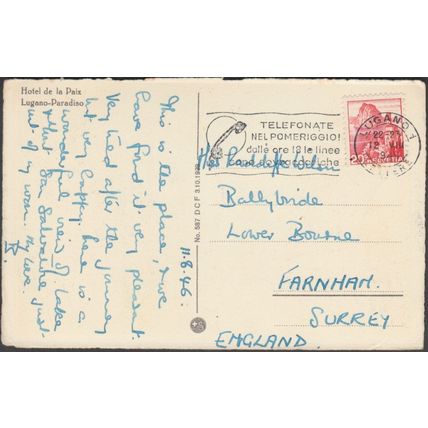 Hotel de la Paix
Lugano-Paradiso
11.8.46.
This is the place, & we
have found it very pleasant.
Very tired after the journey
but very happy. here is a
wonderful view of Lake
& Mount San Salvatore just
out of my room. My love.
No. 587 D C F 3.10.19
TELEFONATE
NEL POMERIGGIO!
dalle ore 18 le linee
LUGANO 1
22-23
12
20 HELVETIA
Mrs Radcliffe Wilson
Ballybride
Lower Bourne
FARNHAM.
SURREY
ENGLAND.